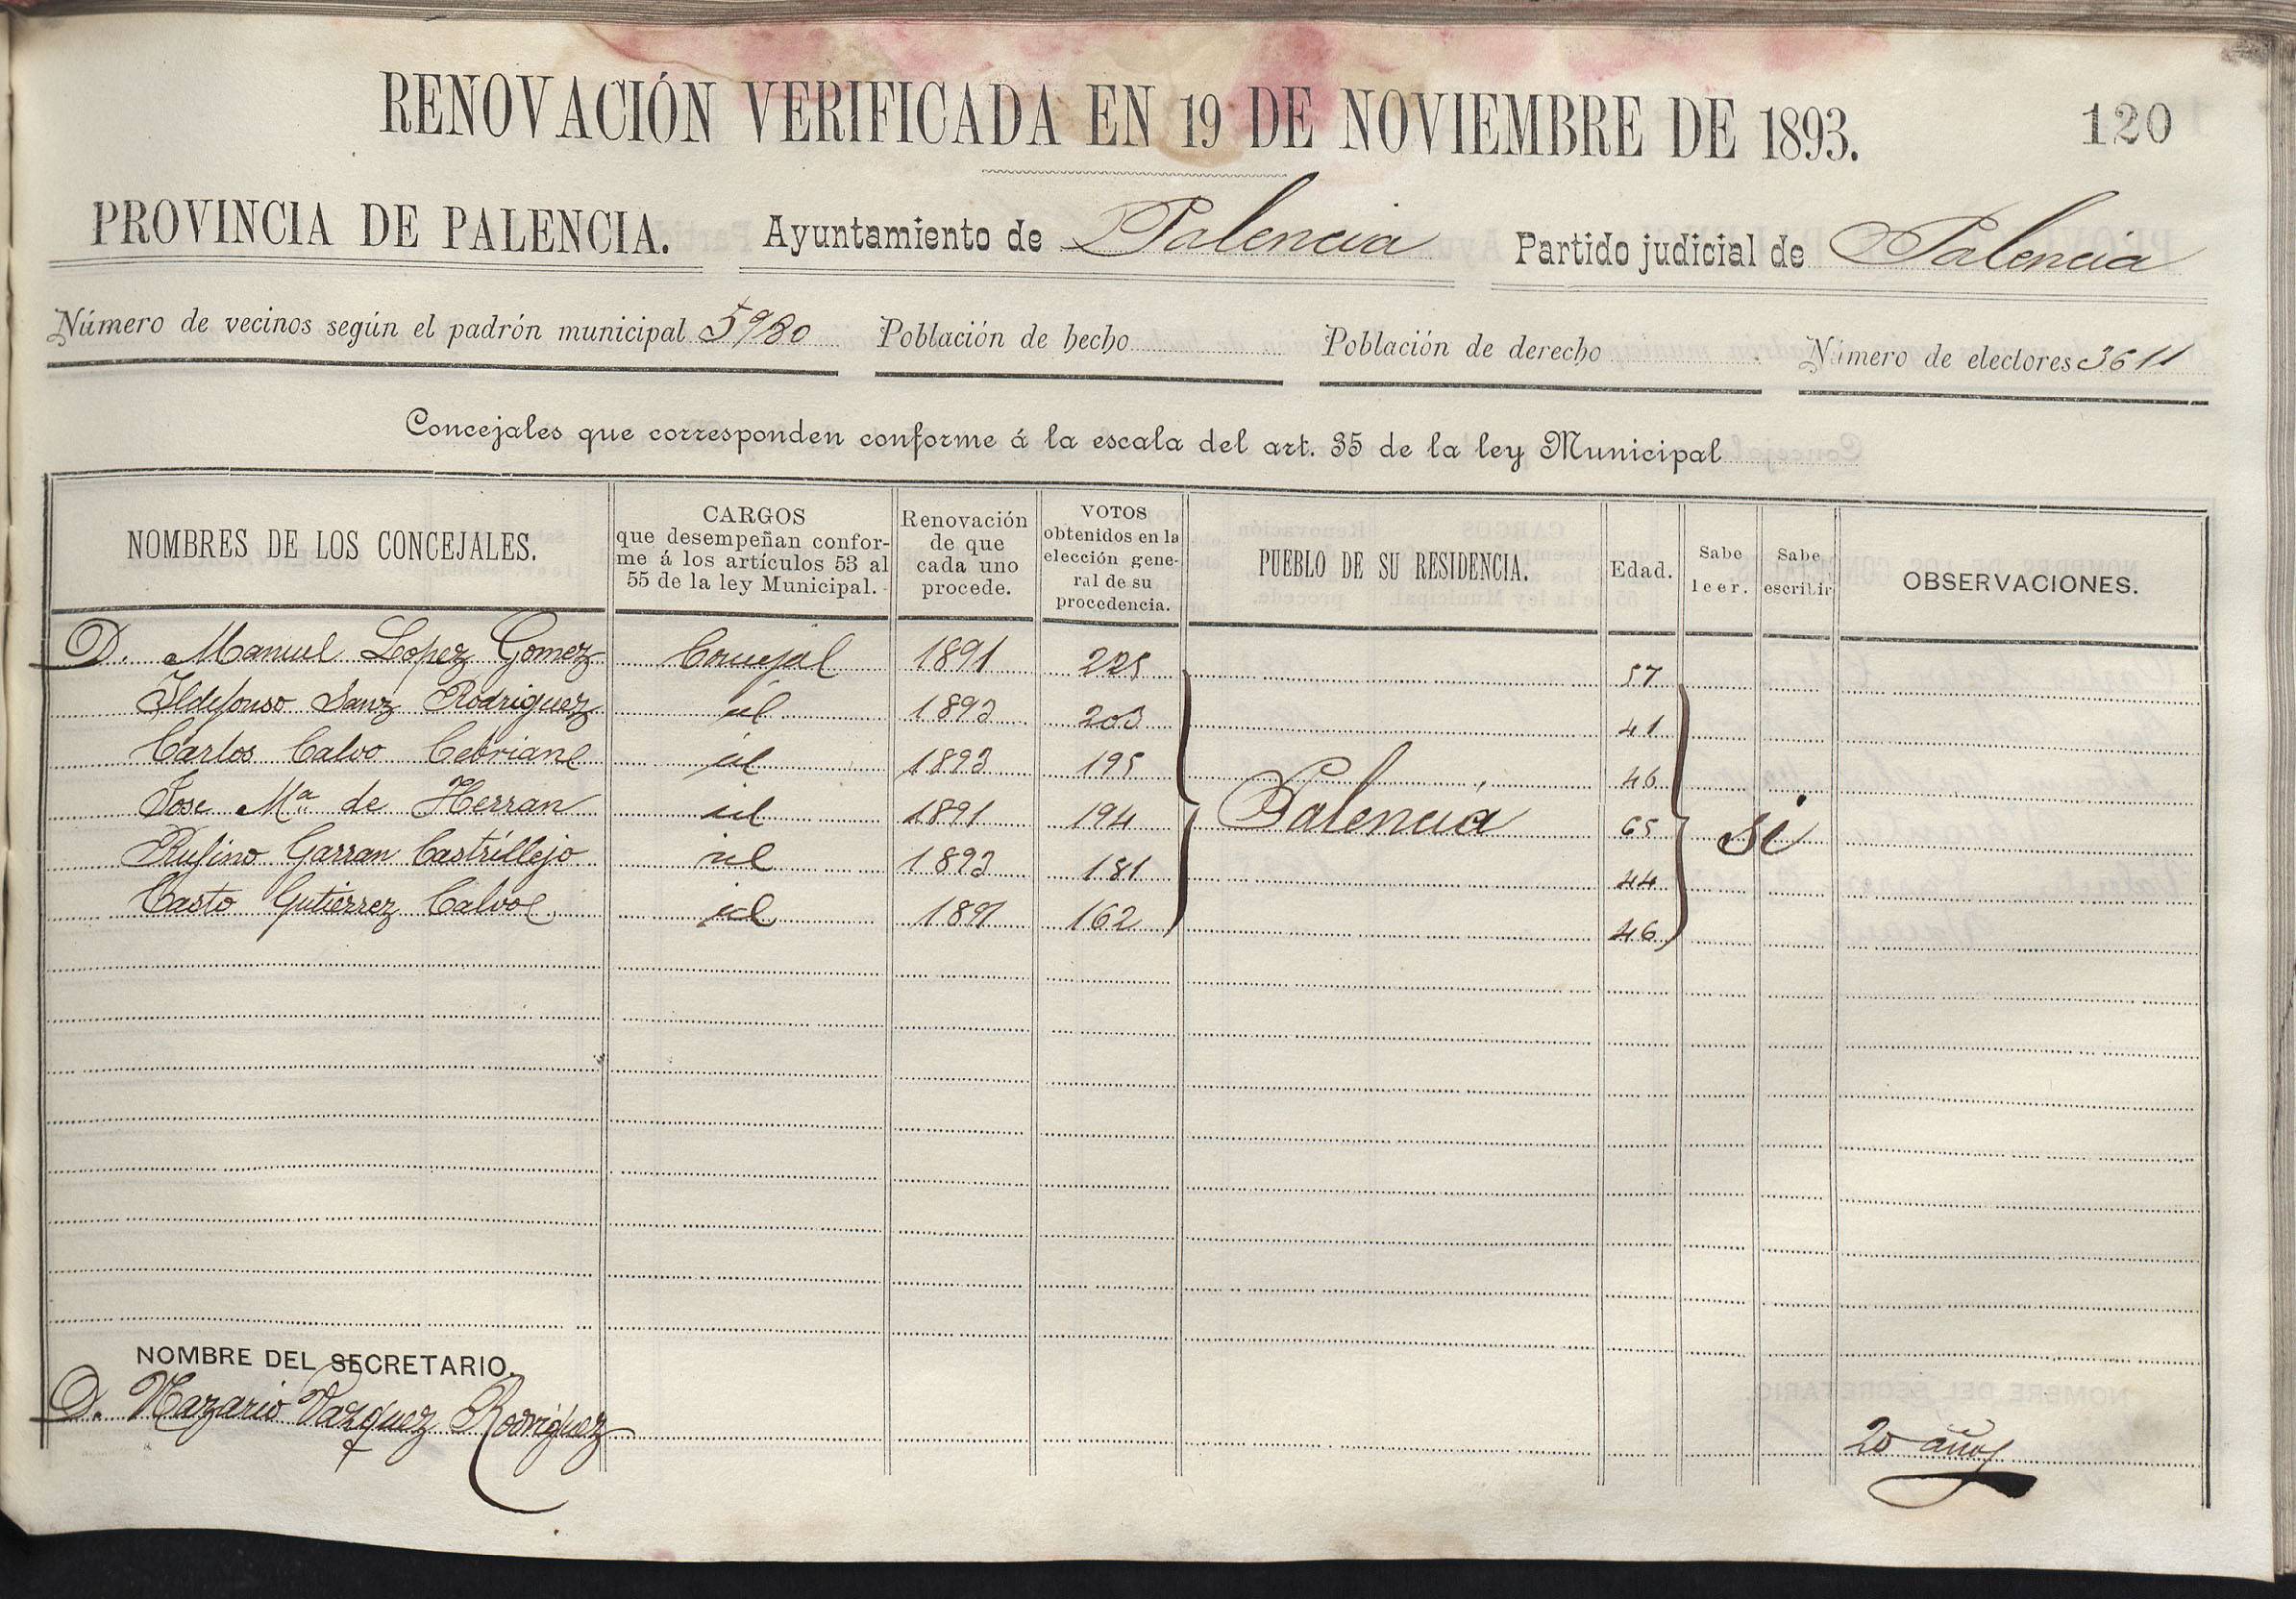 RENOVACIÓN VERIFICADA EN 19 DE NOVIEMBRE DE 1893. 120
PROVINCIA DE PALENCIA. Ayuntamiento de Palencia Partido judicial de Palencia
Número de vecinos según el padrón municipal 5980 Población de hecho Población de derecho Número de electores 3611
Concejales que corresponden conforme á la escala del art. 35 de la ley Municipal
NOMBRES DE LOS CONCEJALES.
CARGOS
que desempeñan confor-
me á los artículos 53 al
55 de la ley Municipal.
Renovación
de que
cada uno
procede.
VOTOS
obtenidos en la
elección gene-
ral de su
procedencia.
PUEBLO DE SU RESIDENCIA.
Edad.
Sabe
leer.
Sabe
escribir
OBSERVACIONES.
D. Manuel Lopez Gomez Concejal 1891 225 57
Ildefonso Sanz Rodriguez id 1893 203 41
Carlos Calvo Cebrian id 1893 195 46
Jose Mª de Herran id 1891 194 Palencia 65 si
Rufino Garran Castrillejo id 1893 181 44
Casto Gutierrez Calvo id 1891 162 46
NOMBRE DEL SECRETARIO.
D. Nazario Vazquez Rodriguez 20 años